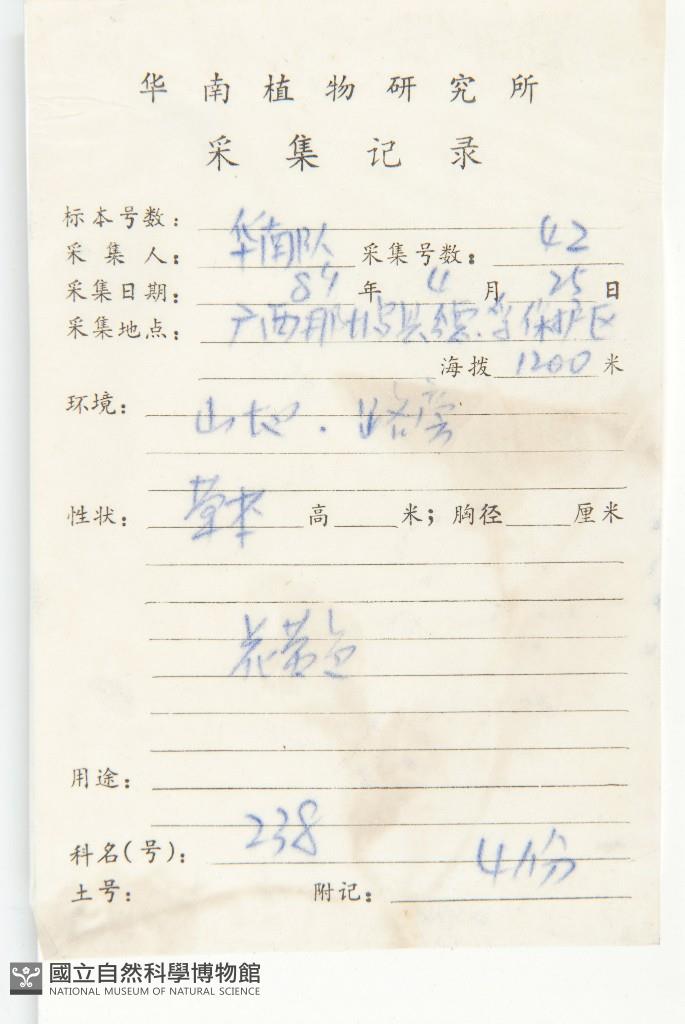 华南植物研究所
采集记录
标本号数：
采集人： 华南队 采集号数： 42
采集日期： 89 年 4 月 25 日
采集地点： 广西那坡县德孚保护区
海拨 1200 米
环境： 山地．路旁
性状： 草本 高 米；胸径 厘米
花黄色
用途：
科名(号)： 238
4份
土号： 附记：
國立自然科學博物館
NATIONAL MUSEUM OF NATURAL SCIENCE